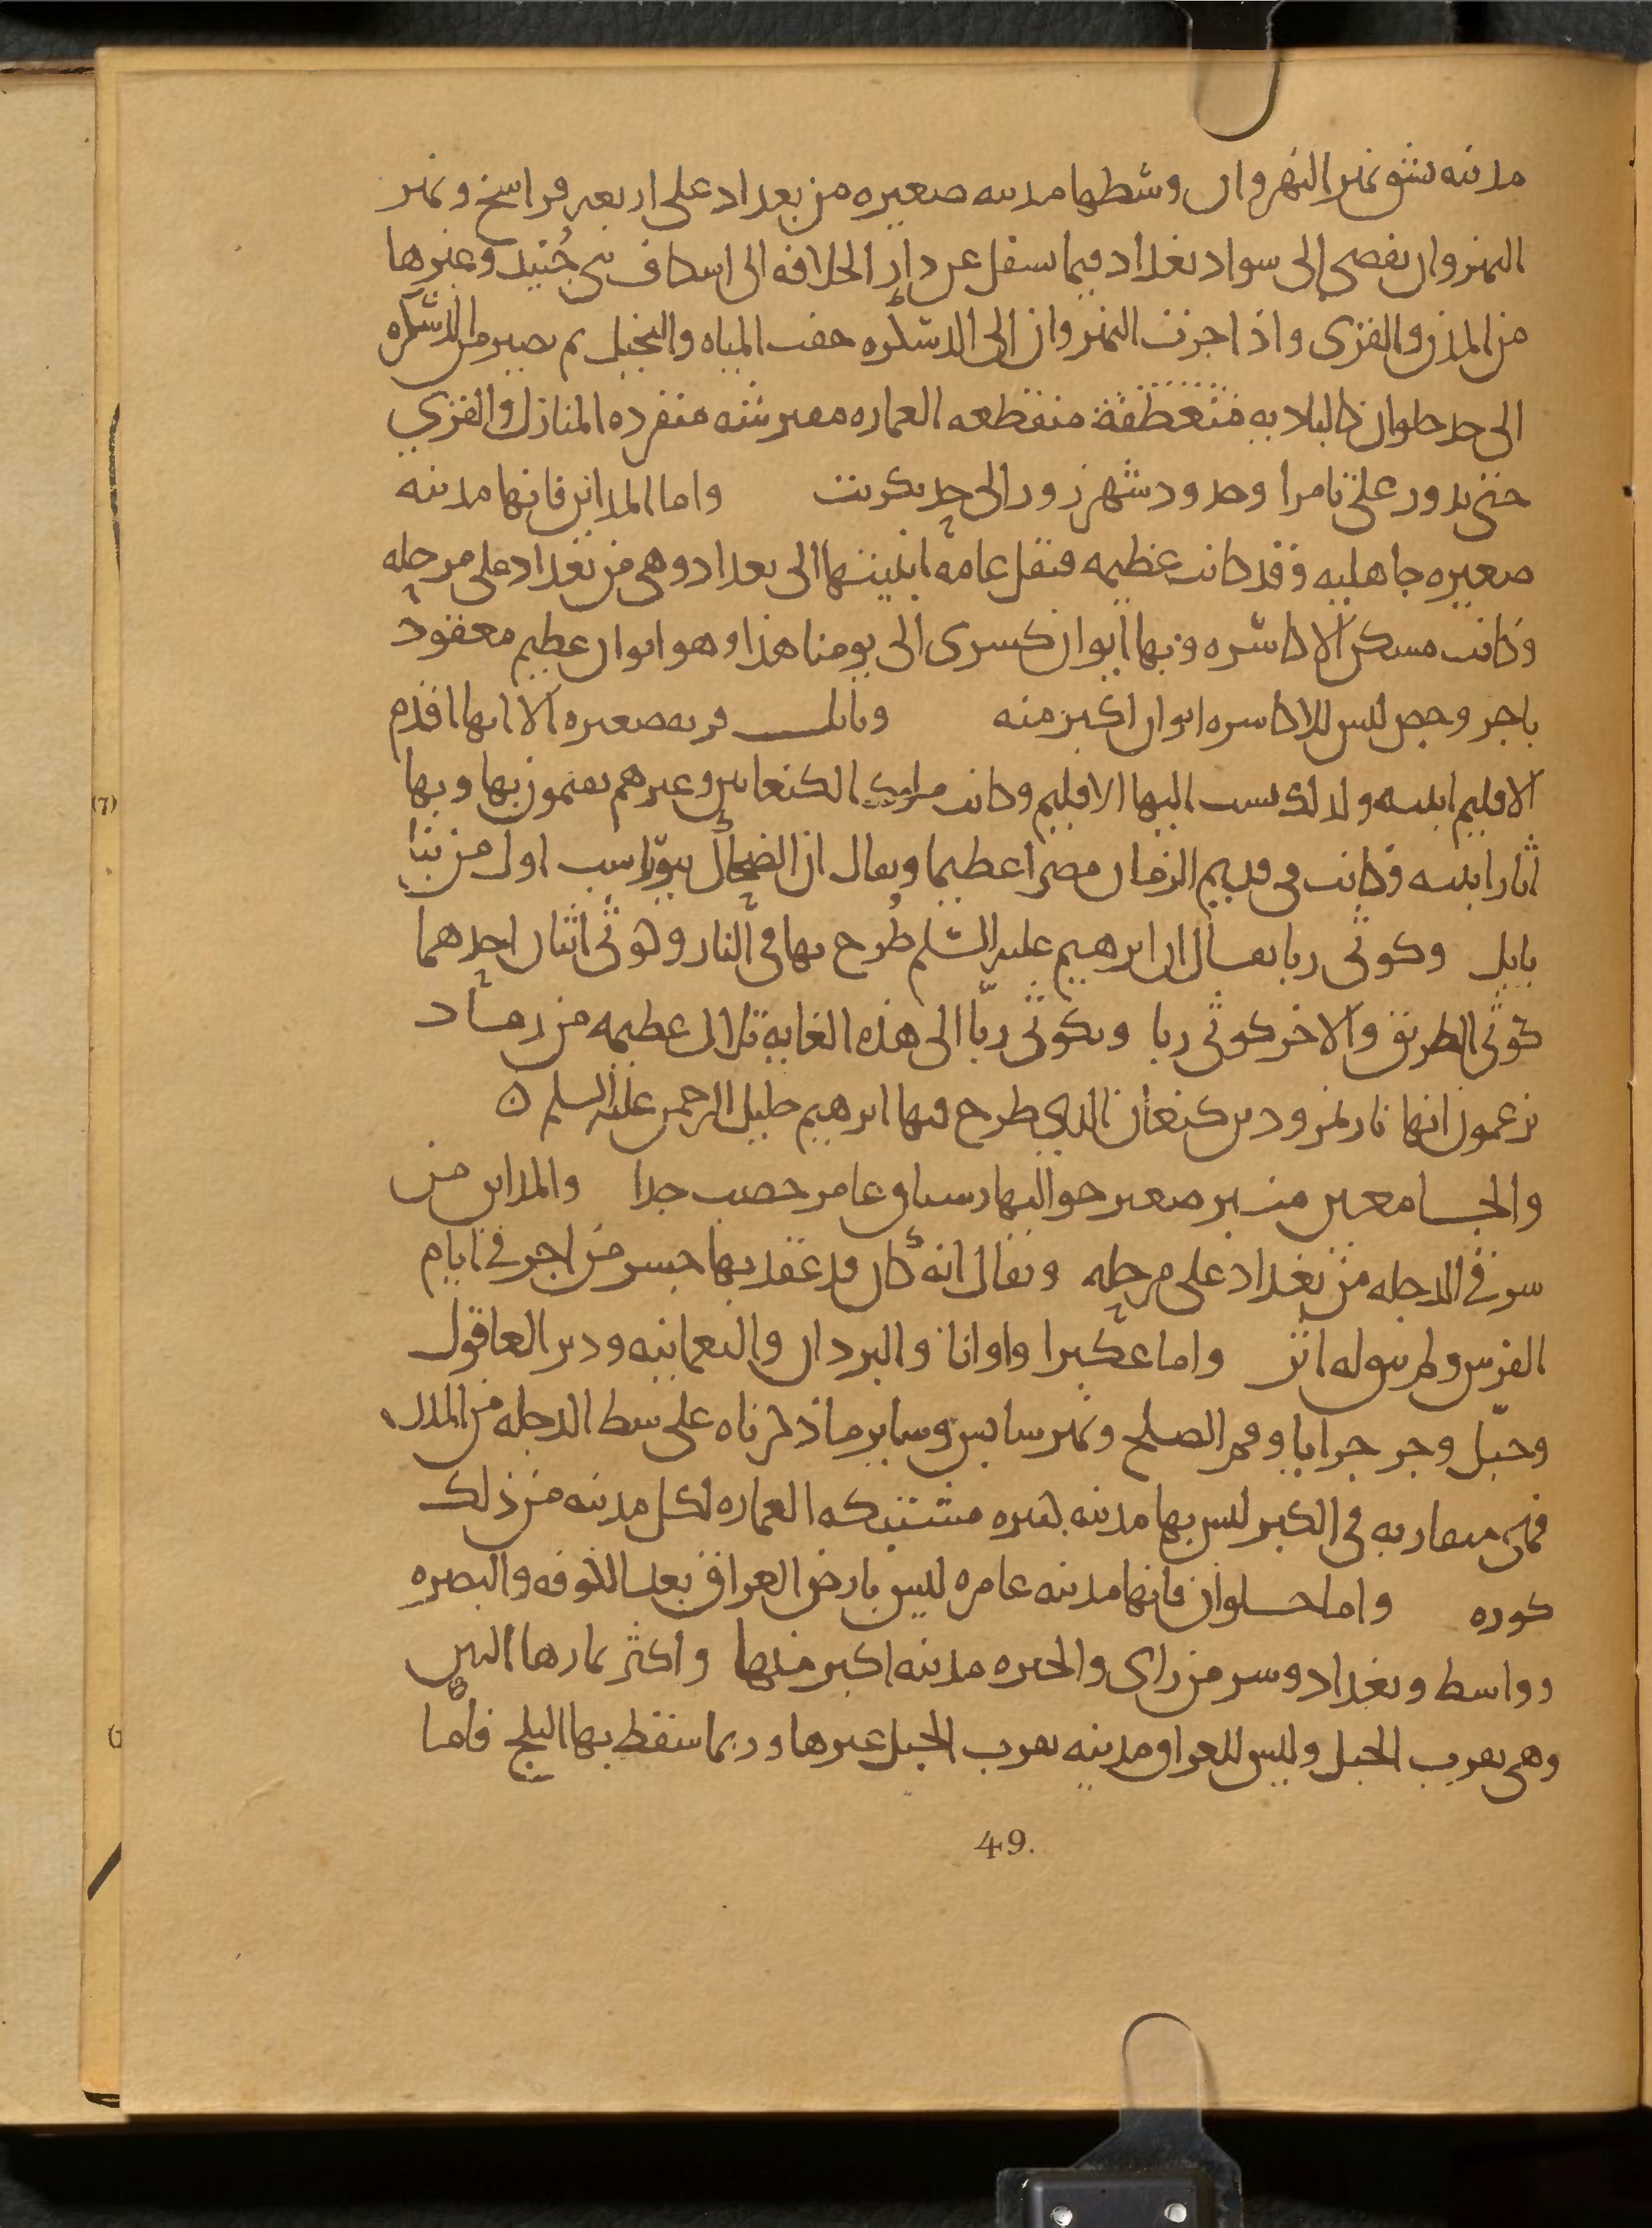 مدينه يشق نهر النهروان وسطها مدينه صغيره من بغداد على اربعه فراسخ ونهر
النهروان يفضى الى سواد بغداد فيما يسفل عن دار الخلافه الى اسكاف بنى جنيد وغيرها
من المدن والقرى واذا جزت النهروان الى الدسكره خفت المياه والنخيل ثم يصير من الدسكره
الى حد حلوان كالباديه منقطعه العماره مفترشه منفرده المنازل والقرى
حتى يدور على تامرا وحدود شهرزور الى حد تكريت واما المداين فانها مدينه
صغيره جاهليه وقد كانت عظيمه فنقل عامه ابنيتها الى بغداد وهى من بغداد على مرحله
وكانت مسكن الاكاسره وبها ايوان كسرى الى يومنا هذا وهو ايوان عظيم معقود
باجر وجص ليس للاكاسره ايوان اكبر منه وبابل قريه صغيره الا انها اقدم
الاقليم ابنيه ولذلك نسب اليها الاقليم وكانت ملوك الكنعانيين وغيرهم يقيمون بها وبها
اثار ابنيه وكانت فى قديم الزمان مصرا عظيما ويقال ان الضحاك بيوراسب اول من بنا
بابل وكوثى ربا يقال ان ابرهيم عليه السلم طرح بها فى النار وكوثى اثنان احدهما
كوثى الطريق والاخر كوثى ربا وبكوثى ربّا الى هذه الغايه تلال عظيمه من رماد
يزعمون انها نار نمرود بن كنعان الذى طرح فيها ابرهيم خليل الرحمن عليه السلم ن
والجامعين منبر صغير حواليها رستاق عامر خصب جدا والمداين من
شرقى الدجله من بغداد على مرحله ويقال انه كان قد عقد بها جسر من اجر فى ايام
الفرس ولم يبق له اثر واما عكبرا واوانا والبردان والنعمانيه ودير العاقول
وجبّل وجرجرايا وفم الصلح ونهر سابس وساير ما ذكرناه على شط الدجله من المدن
فهى متقاربه فى الكبر ليس بها مدينه كبيره مشتبكه العماره لكل مدينه من ذلك
كوره واما حلوان فانها مدينه عامره ليس بارض العراق بعد الكوفه والبصره
وواسط وبغداد وسر من راى والحيره مدينه اكبر منها واكثر ثمارها التين
وهى بقرب الجبل وليس للعراق مدينه بقرب الجبل غيرها وربما سقط بها الثلج فاما
49.
(7)